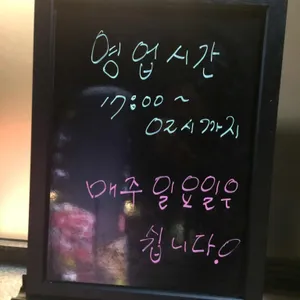 영업시간
17:00~
02시까지
매주 일요일은
쉽니다.